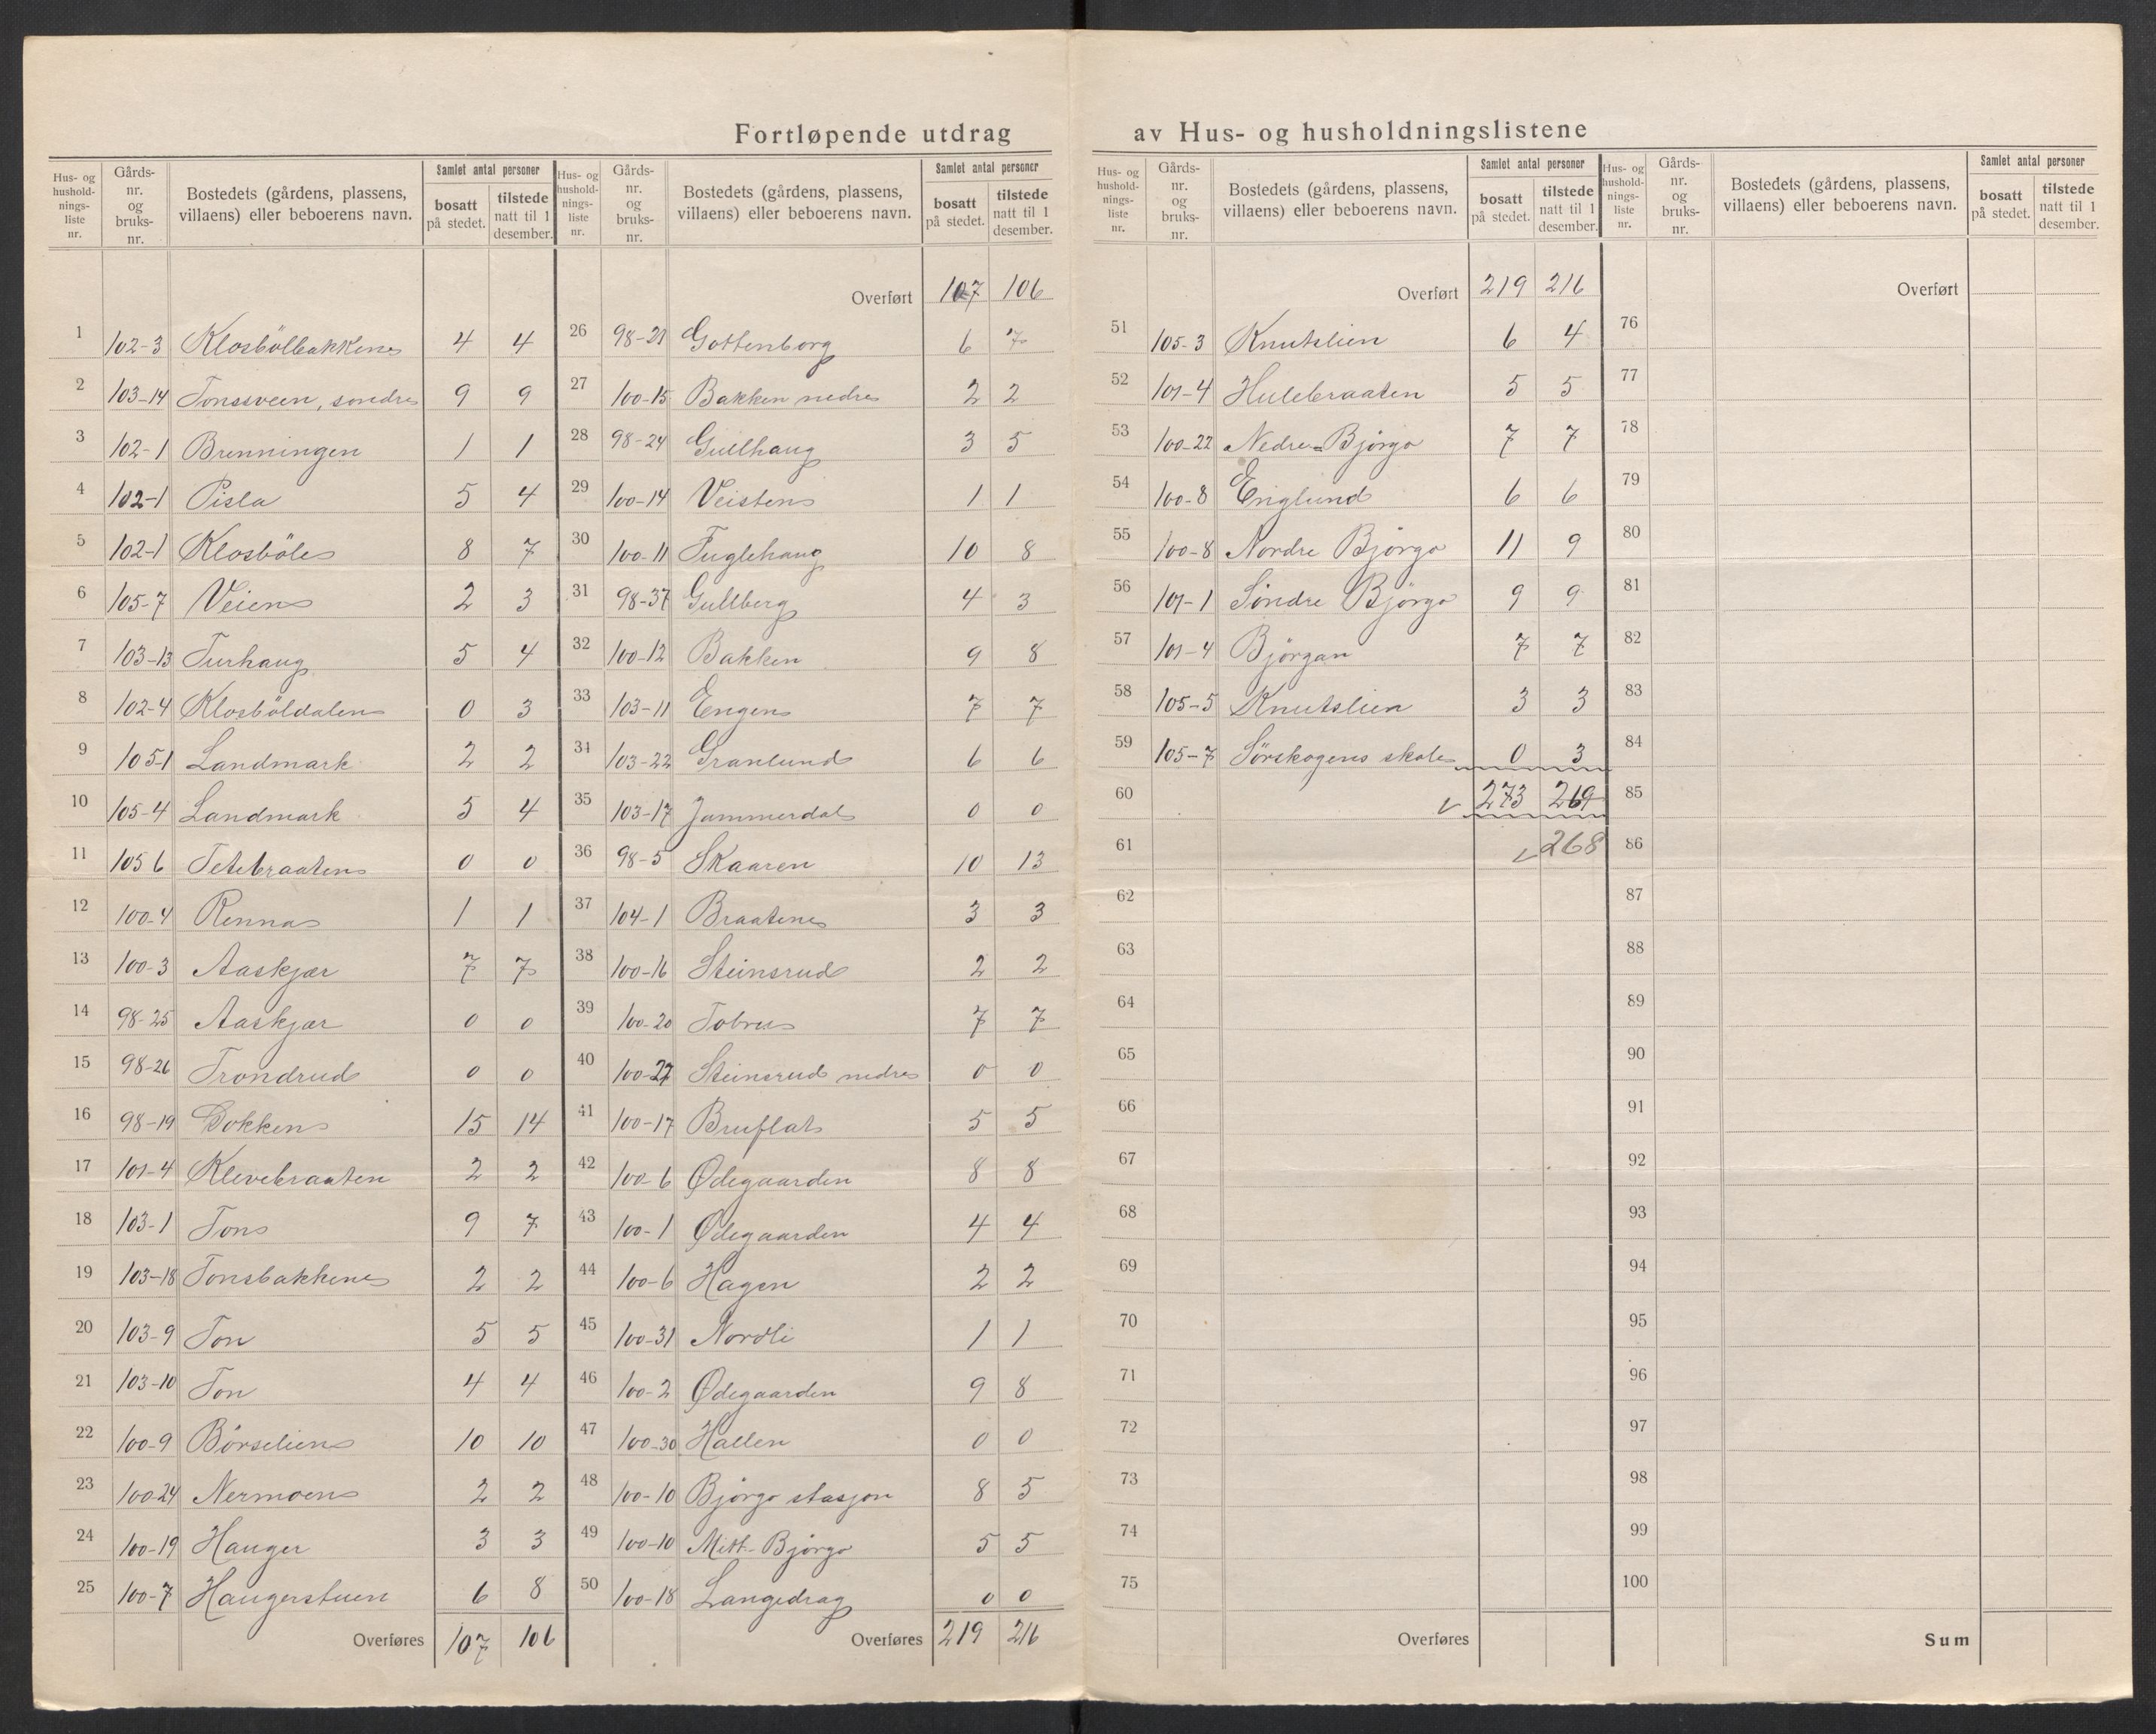 Fortløpende utdrag av Hus- og husholdningslistene
Hus- og hushold-nings-liste nr. | Gårds-nr. og bruks-nr. | Bostedets (gårdens, plassens, villaens) eller beboerens navn. | Samlet antal personer | bosatt på stedet. | tilstede natt til 1 desember.
1 102-3 Klosbölbakken 4 4
2 103-14 Tonssveen, søndre 9 9
3 102-1 Brenningen 1 1
4 102-1 Pisla 5 4
5 102-1 Klosböle 8 7
6 105-7 Veien 2 3
7 103-13 Furhaug 5 4
8 102-4 Klosböldalen 0 3
9 105-1 Landmark 2 2
10 105-4 Landmark 5 4
11 105 6 Tetebraaten 0 0
12 100-4 Renna 1 1
13 100-3 Aaskjær 7 7
14 98-25 Aaskjær 0 0
15 98-26 Trondrud 0 0
16 98-19 Dokken 15 14
17 101-4 Klevebraaten 2 2
18 103-1 Ton 9 7
19 103-18 Tonsbakken 2 2
20 103-9 Ton 5 5
21 103-10 Ton 4 4
22 100-9 Börselien 10 10
23 100-24 Nermoen 2 2
24 100-19 Hauger 3 3
25 100-7 Haugerstuen 6 8
Overføres 107 106
Hus- og hushold-nings-liste nr. | Gårds-nr. og bruks-nr. | Bostedets (gårdens, plassens, villaens) eller beboerens navn. | Samlet antal personer | bosatt på stedet. | tilstede natt til 1 desember.
Overført 107 106
26 98-21 Gottenborg 6 7
27 100-15 Bakken nedre 2 2
28 98-24 Gullhaug 3 5
29 100-14 Veisten 1 1
30 100-11 Fuglehaug 10 8
31 98-37 Gullberg 4 3
32 100-12 Bakken 9 8
33 103-11 Engen 7 7
34 103-22 Granlund 6 6
35 103-17 Jammerdal 0 0
36 98-5 Skaaren 10 13
37 104-1 Braaten 3 3
38 100-16 Steinsrud 2 2
39 100-20 Tobru 7 7
40 100-27 Steinsrud nedre 0 0
41 100-17 Bruflat 5 5
42 100-6 Ødegaarden 8 8
43 100-1 Ødegaarden 4 4
44 100-6 Hagen 2 2
45 100-31 Nordli 1 1
46 100-2 Ødegaarden 9 8
47 100-30 Hallen 0 0
48 100-10 Bjørgo stasjon 8 5
49 100-10 Mitt-Bjørgo 5 5
50 100-18 Langedrag 0 0
Overføres 219 216
Hus- og hushold-nings-liste nr. | Gårds-nr. og bruks-nr. | Bostedets (gårdens, plassens, villaens) eller beboerens navn. | Samlet antal personer | bosatt på stedet. | tilstede natt til 1 desember.
Overført 219 216
51 105-3 Knutslien 6 4
52 101-4 Hulebraaten 5 5
53 100-22 Nedre-Bjørgo 7 7
54 100-8 Englund 6 6
55 100-8 Nordre Bjørgo 11 9
56 101-1 Söndre Bjørgo 9 9
57 101-4 Björgan 7 7
58 105-5 Knutslien 3 3
59 105-7 Sörskogens skole 0 3
60 273 269
61 268
62
63
64
65
66
67
68
69
70
71
72
73
74
75
Overføres
Hus- og hushold-nings-liste nr. | Gårds-nr. og bruks-nr. | Bostedets (gårdens, plassens, villaens) eller beboerens navn. | Samlet antal personer | bosatt på stedet. | tilstede natt til 1 desember.
Overført
76
77
78
79
80
81
82
83
84
85
86
87
88
89
90
91
92
93
94
95
96
97
98
99
100
Sum